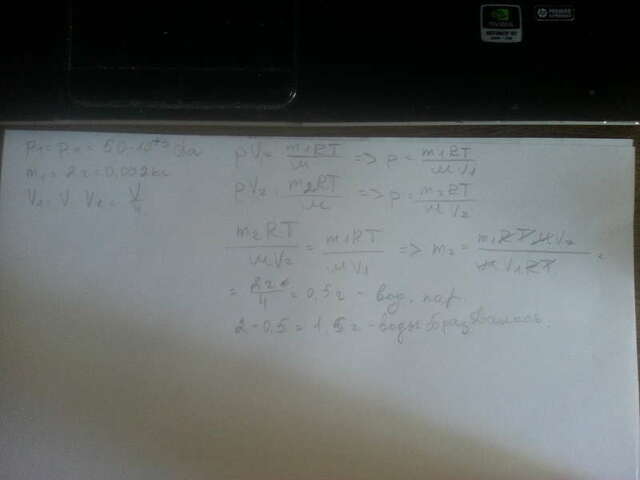 NVIDIA
hp
p₁ = p₂ = 50·10⁺³ Па
m₁ = 2 г = 0,002 кг
V₁ = V V₂ = V/4
pV₁ = m₁RT/μ => p = m₁RT/μV₁
pV₂ = m₂RT/μ => p = m₂RT/μV₂
m₂RT/μV₂ = m₁RT/μV₁ => m₂ = m₁RTμV₂/μV₁RT =
= 2г/4 = 0,5 г - вод. пар
2 - 0,5 = 1,5 г - воды образовалось.